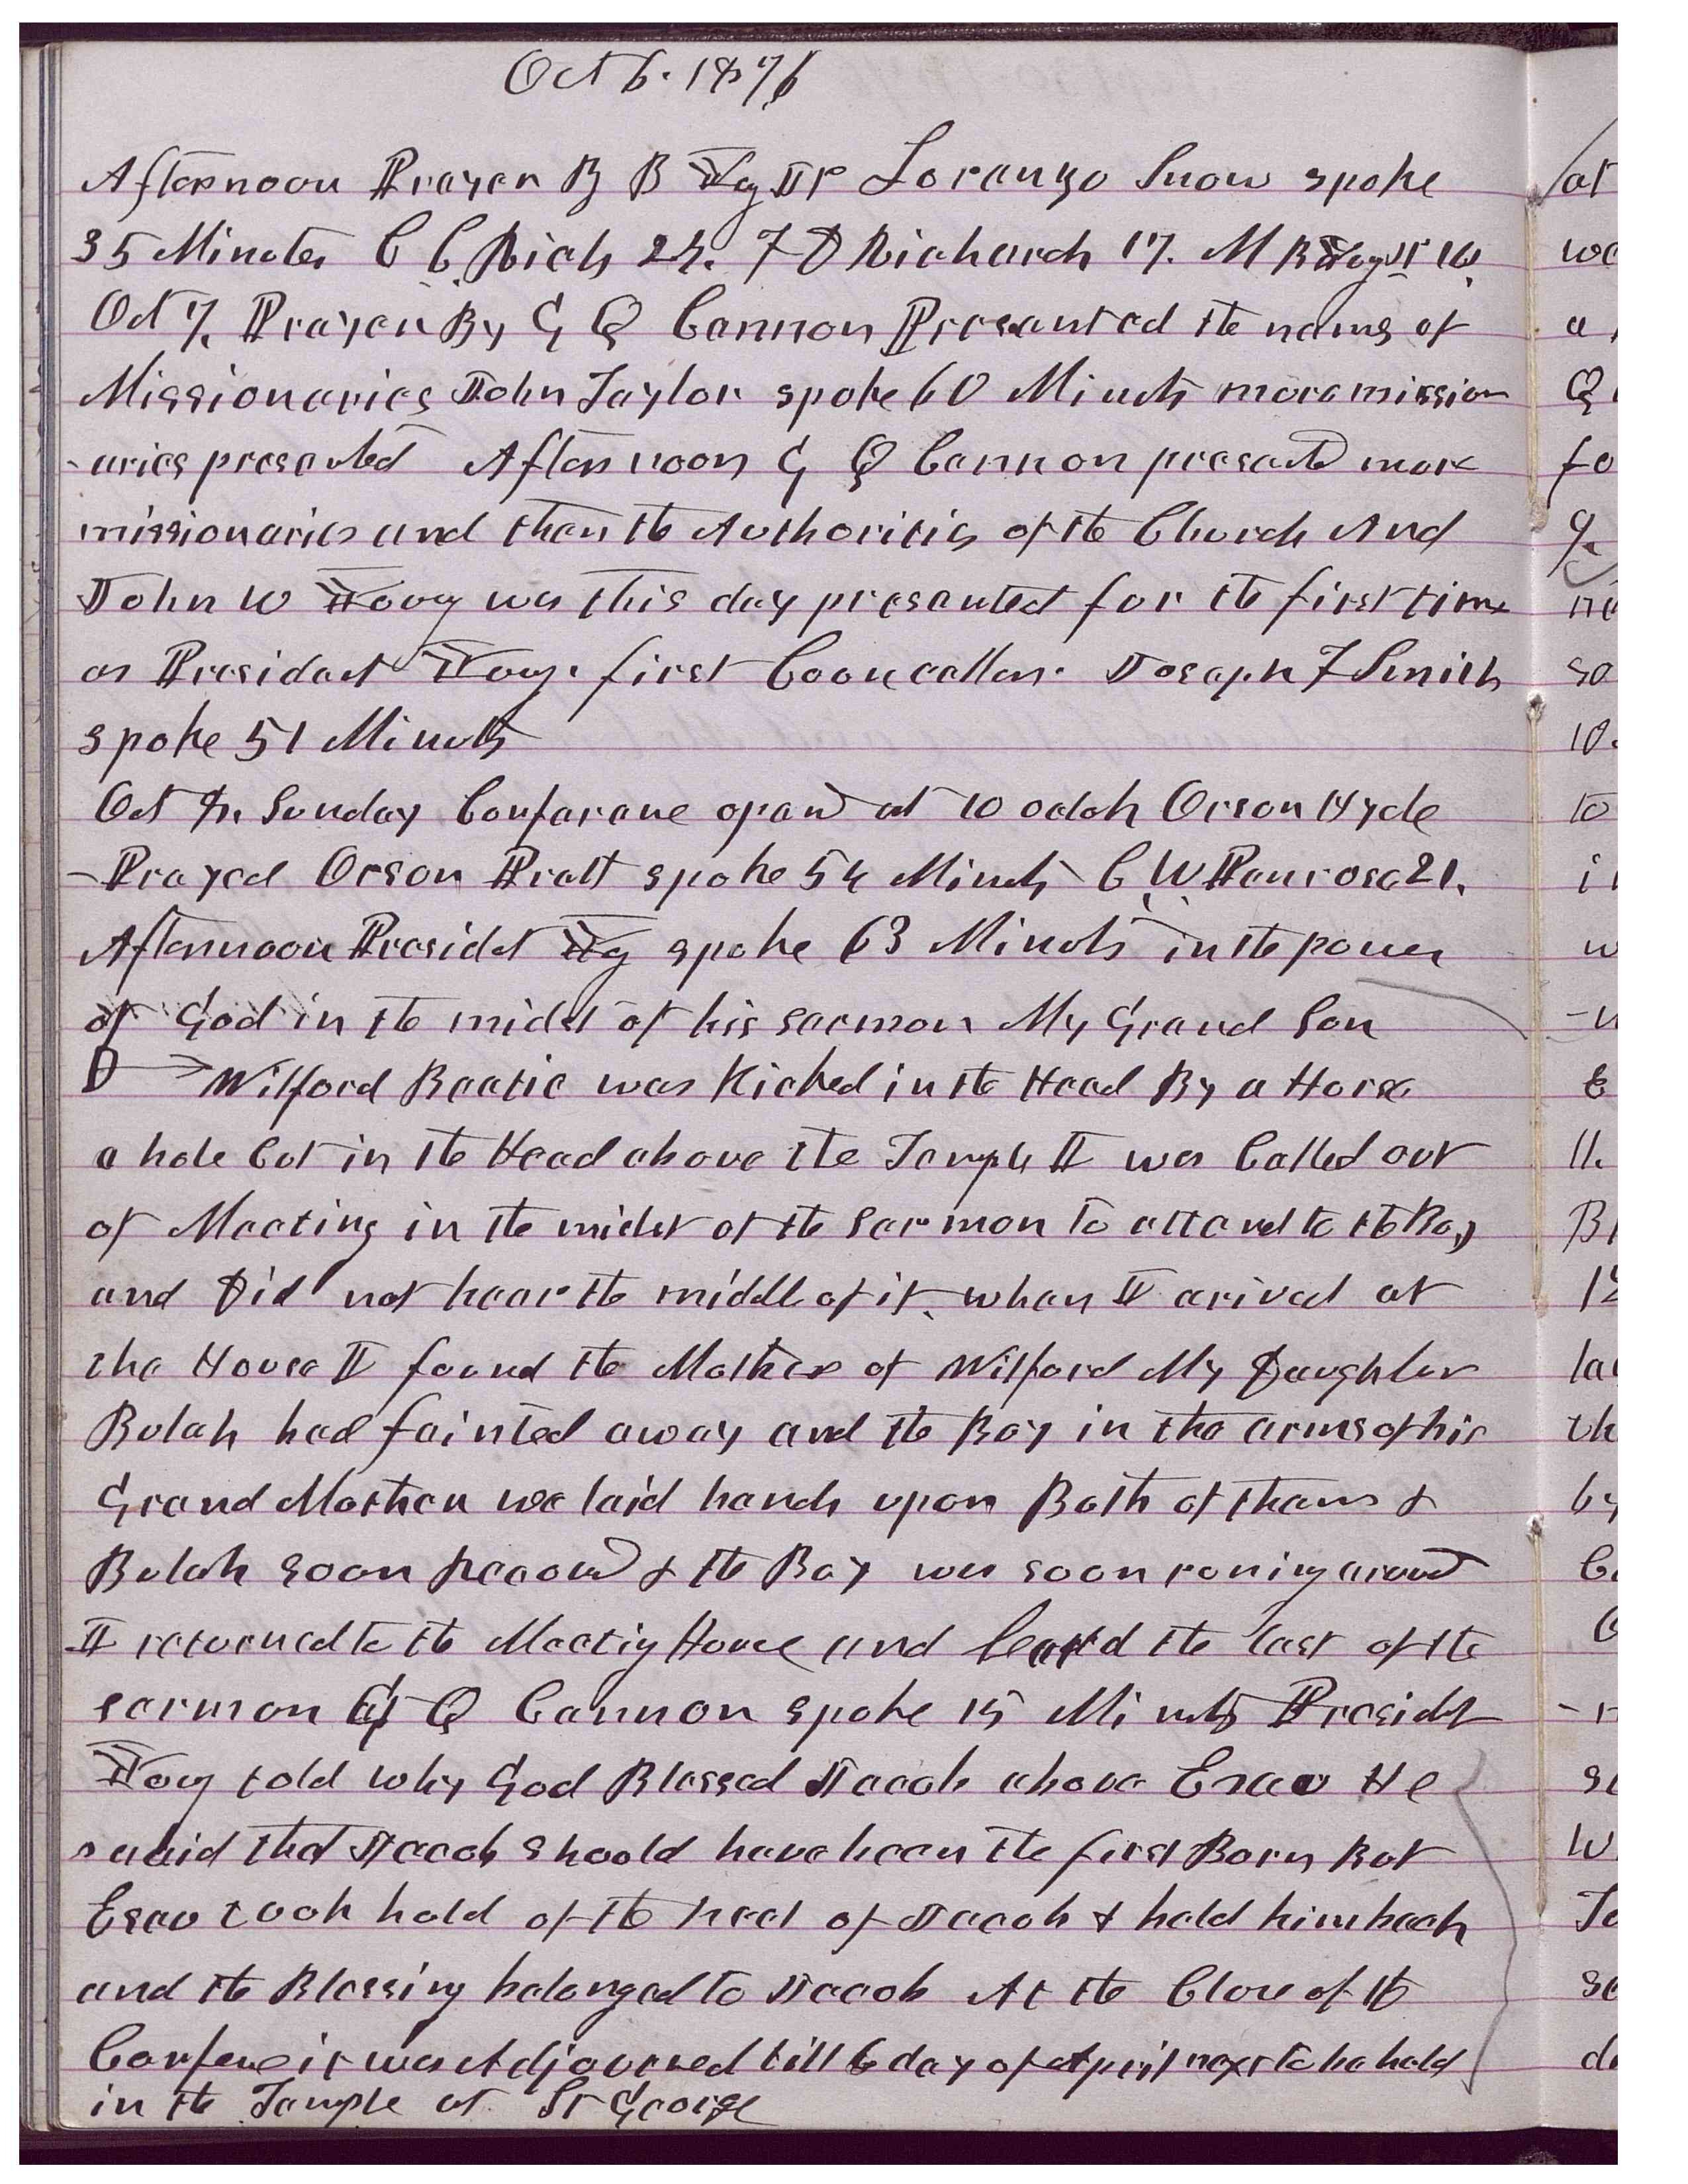 Oct 6. 1876
Afternoon Prayer By B Yg Jr Lorenzo Snow spoke
35 Minutes C C Rich 24. F D Richards 17. M B Young 10.
Oct 7. Prayer By G Q Cannon Presented the names of
Missionaries John Taylor spoke 60 Minuts more mission
-aries presented Afternoon G Q Cannon presentd more
missionaries and then the Authorities of the Church And
John W Young was this day presented for the first time
as President Youngs first Councellor. Joseph F Smith
spoke 51 Minuts
Oct 8. Sunday Conferene opend at 10 oclok Orson Hyde
-Prayed Orson Pratt spoke 54 Minuts C W Penrose 21.
Afternoon Presidet Yg spoke 63 Minuts in the power
of God in the midst of his sermon My Grand Son
Wilford Beatie was Kicked in the Head By a Horse
a hole Cut in the Head above the Temple I was Called out
of Meeting in the midst of the Sermon to attend to the Boy
and Did not hear the middle of it. when I arived at
the House I found the Mother of Wilford My Daughter
Bulah had fainted away and the Boy in the arms of his
Grand Mother we laid hands upon Both of them &
Bulah soon recovd & the Boy was soon runing around
I returned to the Meetig House and heard the last of the
sermon G Q Cannon spoke 15 Minuts Presidet
Young told why God Blessed Jacob above Esau He
said that Jacob should have been the first Born But
Esau took hold of the heel of Jacob & held him back
and the Blessing belonged to Jacob At the Close of the
Confere it was Adjourned till 6 day of April next to be held
in the Temple at St George